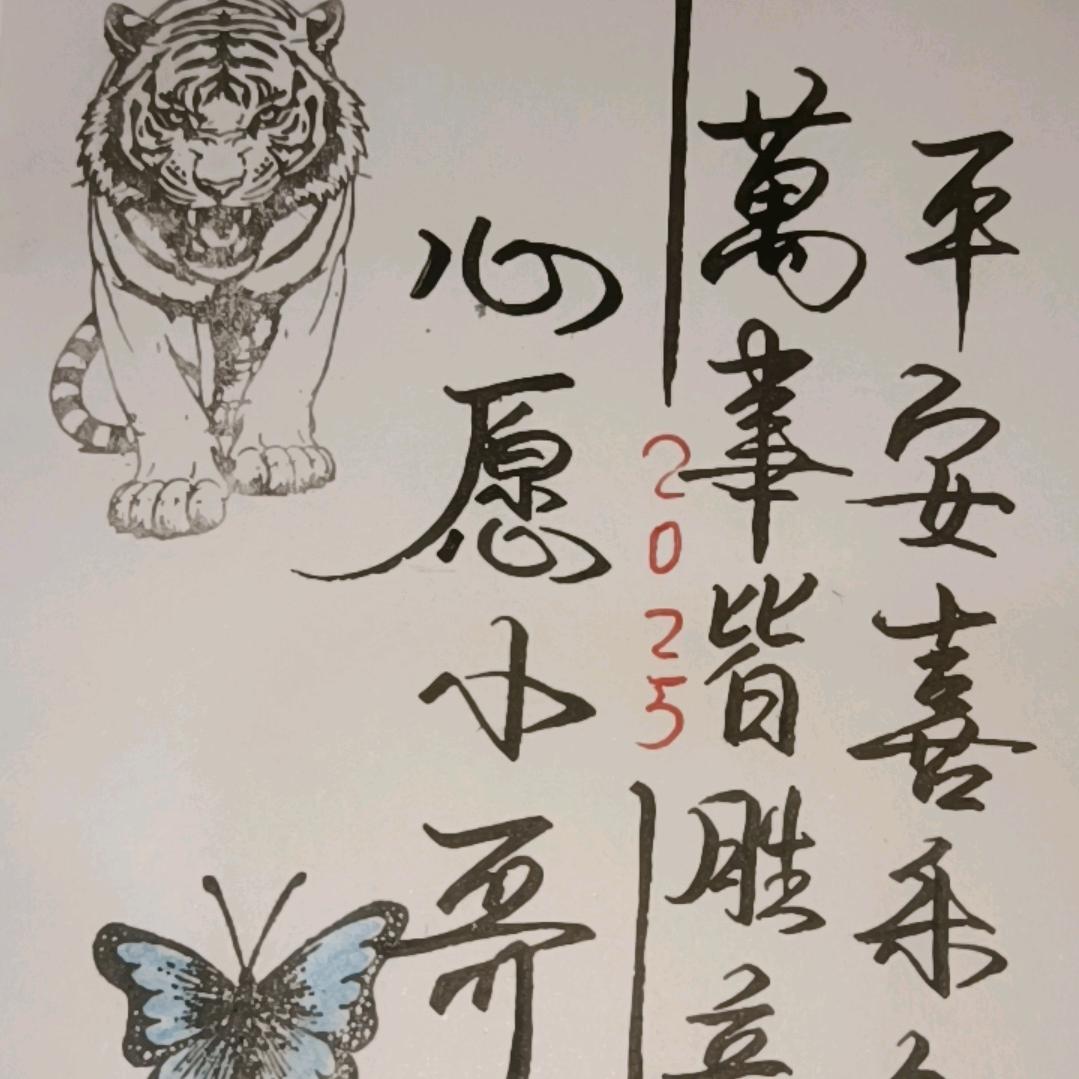 平安喜乐
萬事皆胜意
2025
心愿小